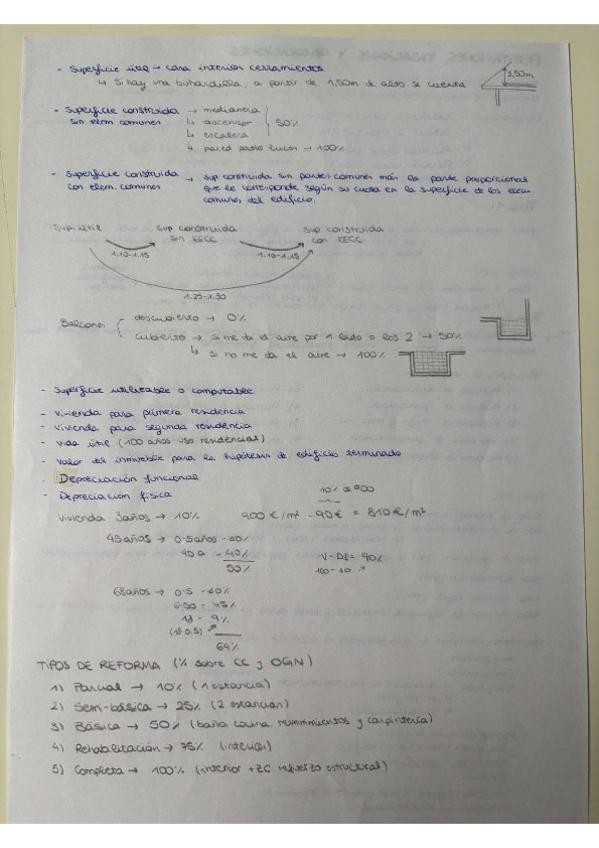 - Superficie útil → cara interior cerramientos
↳ Si hay una buhardilla, a partir de 1,50m de alto se cuenta
1,50m
- Superficie construida → medianera
sin elem comunes ↳ ascensor 50%
↳ escalera
↳ pared patio luces → 100%
- Superficie construida → sup construida sin partes comunes más la parte proporcional
con elem. comunes que le corresponde según su cuota en la superficie de los elem.
comunes del edificio.
Sup útil Sup construida Sup construida
sin EECC con EECC
1.10-1.15 1.10-1.15
1.25-1.30
Balcones descubierto → 0%
cubierto → si me da el aire por 1 lado o los 2 → 50%
↳ si no me da el aire → 100%
- Superficie utilizable o computable
- Vivienda para primera residencia
- Vivienda para segunda residencia
- Vida útil (100 años uso residencial)
- Valor del inmueble para la hipótesis de edificio terminado
Depreciación funcional
- Depreciación física
10% de 900
Vivienda 3años → 10% 900€/m² - 90€ = 810€/m²
45años → 0-5años - 10%
40a - 40%
50%
V-Df= 90%
100-10
68años → 0-5 - 10%
6-50 - 45%
18 - 9%
(18·0,5)
64%
TIPOS DE REFORMA (% sobre CC y OGN)
1) Parcial → 10% (1 estancia)
2) Semi-básica → 25% (2 estancias)
3) Básica → 50% (baño, cocina, revestimientos y carpintería)
4) Rehabilitación → 75% (interior)
5) Completa → 100% (interior + ZC refuerzo estructural)